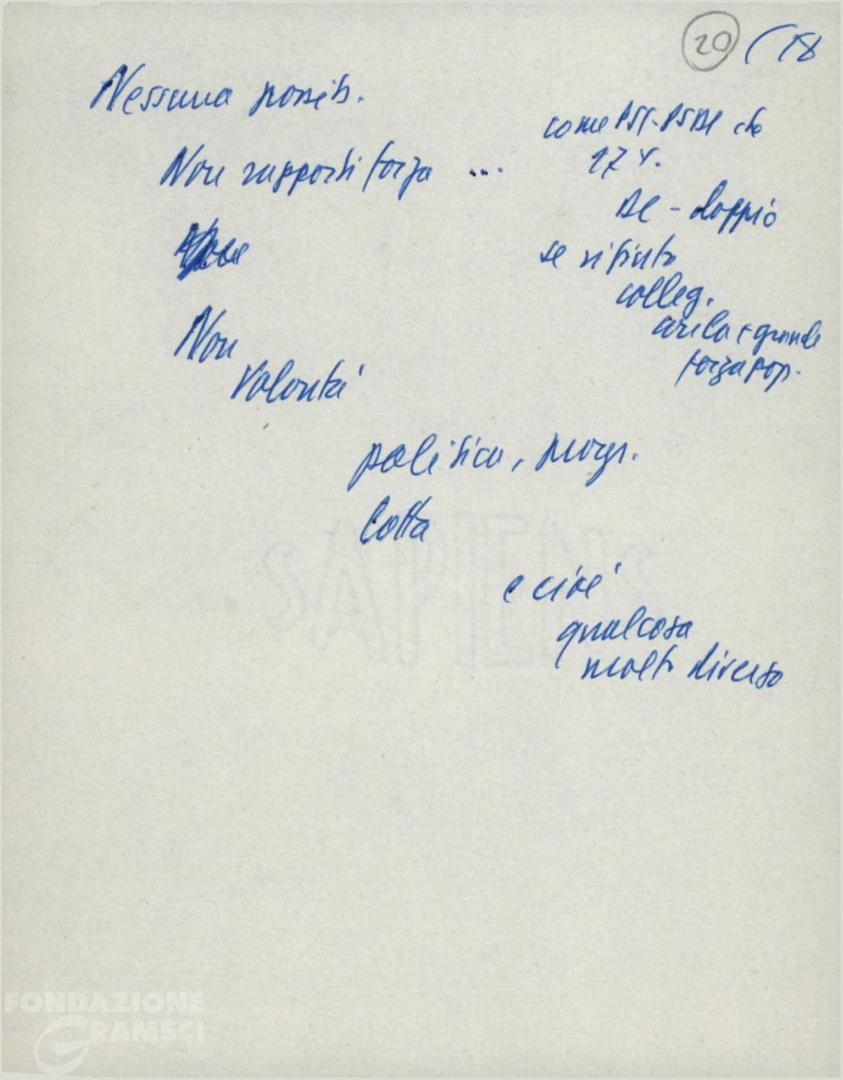 20 ( 18
Nessuna possib.
Non rapporti forza ...
Non
volontà
come PSI-PSDI che
17 %.
DC - doppio
se rifiuto
colleg.
grande
forza pop.
politica, progr.
lotta
e cioè
qualcosa
molto diverso
SAPIENS
FONDAZIONE
GRAMSCI